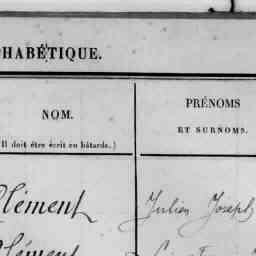 PHABÉTIQUE.
NOM.
PRÉNOMS
ET SURNOMS.
Il doit être écrit en bâtarde.)
Clément
Julien Joseph
Clément